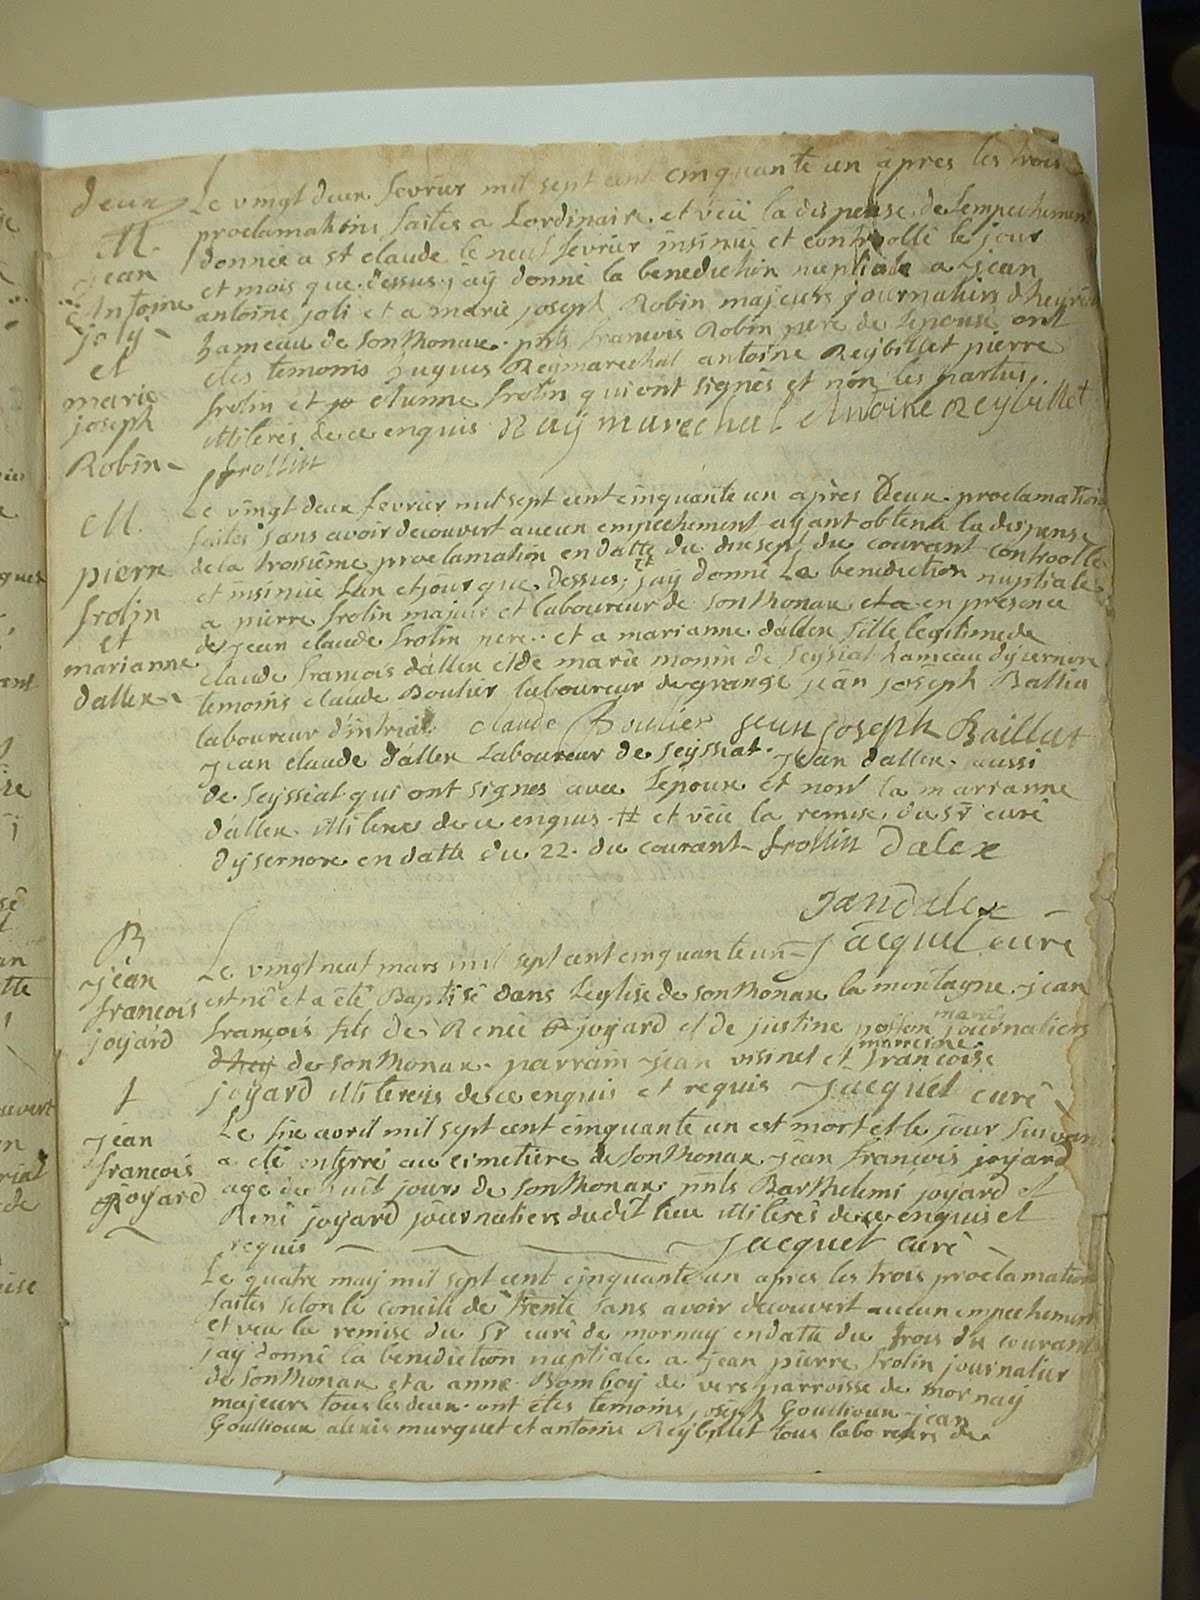 deux
Le vingt deux fevrier mil sept cent cinquante un âpres les trois
proclamations faites a Lordinaire et veü la dispense de Lempechement
donnée a st claude le neuf fevrier insinué et controollé le jour
et mois que dessus jäy donné la benediction nuptiale a jean
antoine joli et a marie joseph Robin majeurs journaliers
hameau de Sonthonax pnts francois Robin pere de Lepouse ont
etes temoins hugues Reymarechal antoine Reÿbillet pierre
frolin et etienne frolin qui ont signés et non les parties
illiterés de ce enquis Raÿ marechal Antoine Reybillet
frollin
M.
jean
Antoine
joly
et
marie
joseph
Robin
Le vingt deux fevrier mil sept cent cinquante un après Deux proclamations
faites sans avoir decouvert aucun empechement ayant obtenu la dispense
de la troisiême proclamation en datte du dixsept du courant controollé
et insinué Lan et jour que dessus, jäy donné La benediction nuptiale
a pierre frolin majeur et laboureur de Sonthonax en presence
de jean claude frolin pere et a marianne dallex fille legitime de
claude francois dallex et de marie monin de Seyssiat hameau dysernore
temoins claude Boulier laboureur de grange jean joseph Ballia
laboureur d'intriat claude Boulier jean joseph Baillat
jean claude dâllex Laboureur de Seyssiat jean dallex aussi
de Seyssiat qui ont signes avec Lepoux et non la marianne
dâllex illiteree de ce enquis # et veü la remise du sr curé
dysernore en datte du 22 du courant frollin Dalex
Jandalex
jacquet curé
M.
pierre
frolin
et
marianne
dallex
Le vingt neuf mars mil sept cent cinquante un
est né et a été Baptisé dans Leglise de Sonthonax la montagne jean
françois fils de Renée joyard et de justine posson mariés journaliers
de Sonthonax parrain jean visinet et marreine francoise
joyard illiterés de ce enquis et requis jacquet curé
B
jean
françois
joyard
Le six avril mil sept cent cinquante un est mort et le jour suivant
a été enterré au cimetiere de Sonthonax jean francois joyard
agé de huit jours de Sonthonax pnts Barthelemi joyard et
René joyard journaliers dudit lieu illiterés de ce enquis et
requis jacquet curé
†
jean
francois
joyard
Le quatre may mil sept cent cinquante un apres les trois proclamations
faites selon le concile de trente sans avoir decouvert aucun empechement
et veu la remise du Sr curé de mornay en datte du trois du courant
jay donné la benediction nuptiale a jean pierre frolin journalier
de Sonthonax et a anne Bomboy de vers parroisse de mornay
majeurs tous les deux ont etes temoins joseph Goullioux jean
Goullioux alexis murguet et antoine Reÿbillet tous laboureurs de